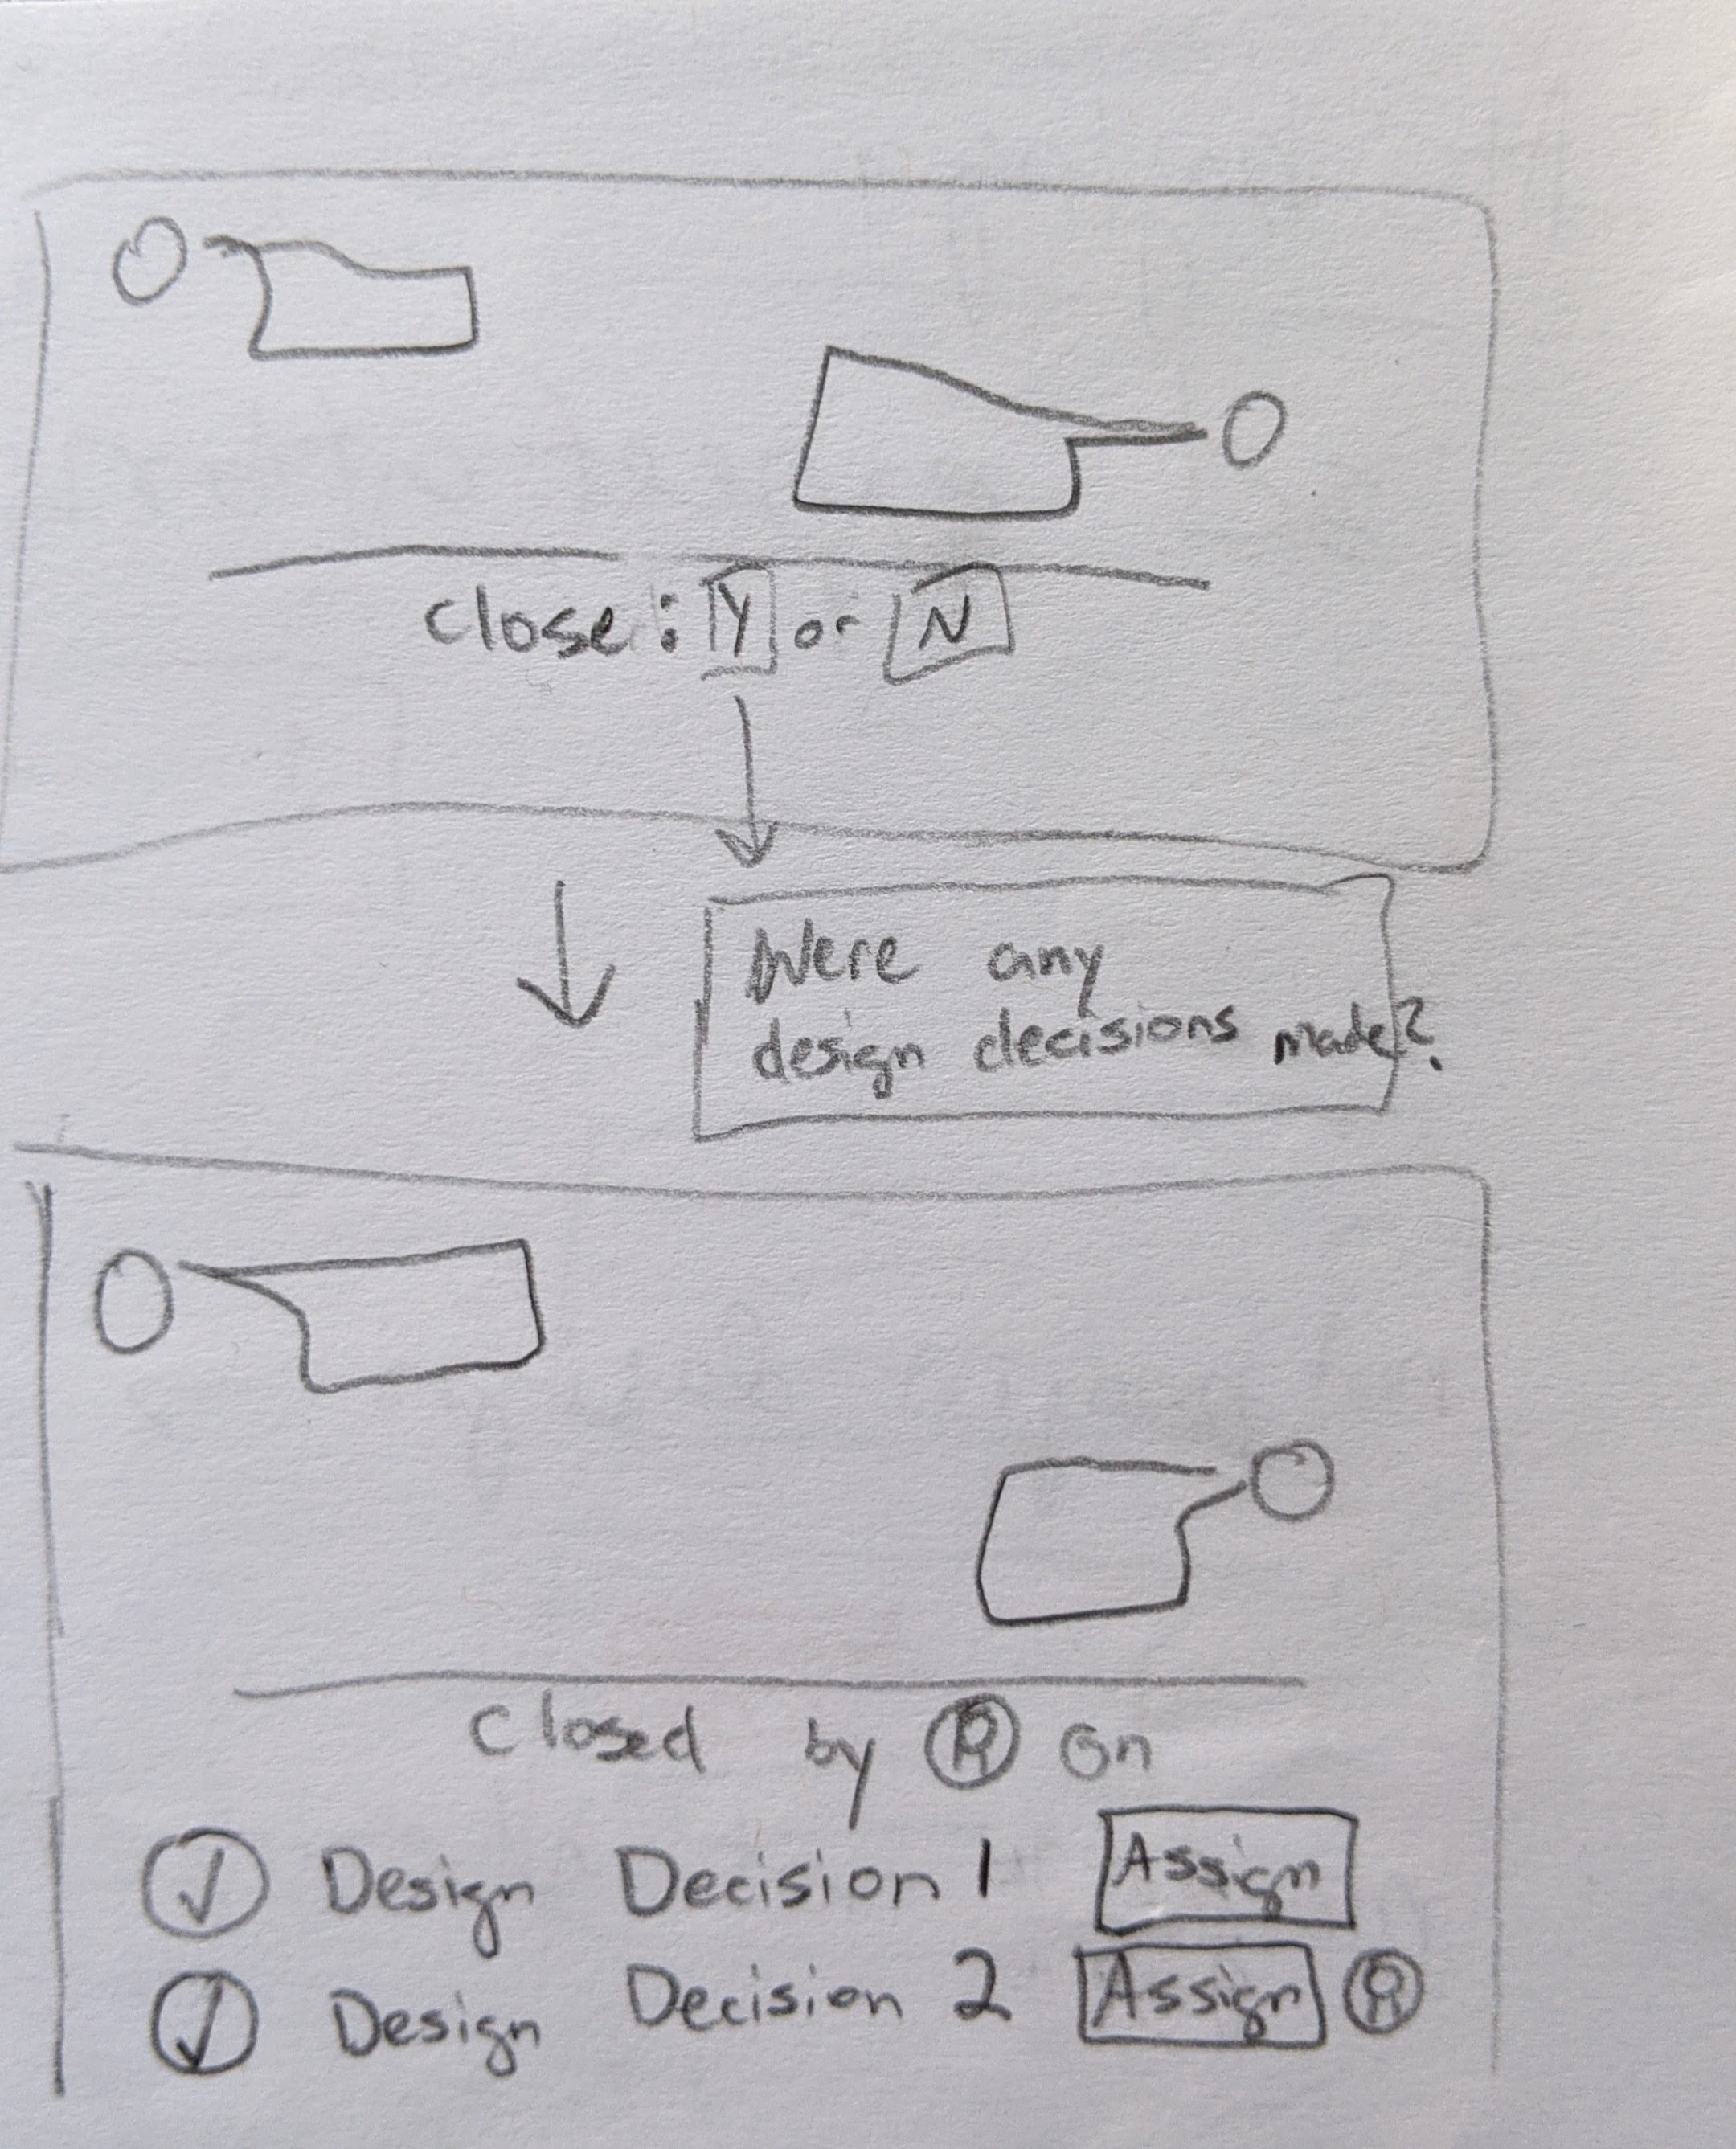 Close: Y or N
Were any
design decisions made?
Closed by R on
Design Decision 1 Assign
Design Decision 2 Assign R